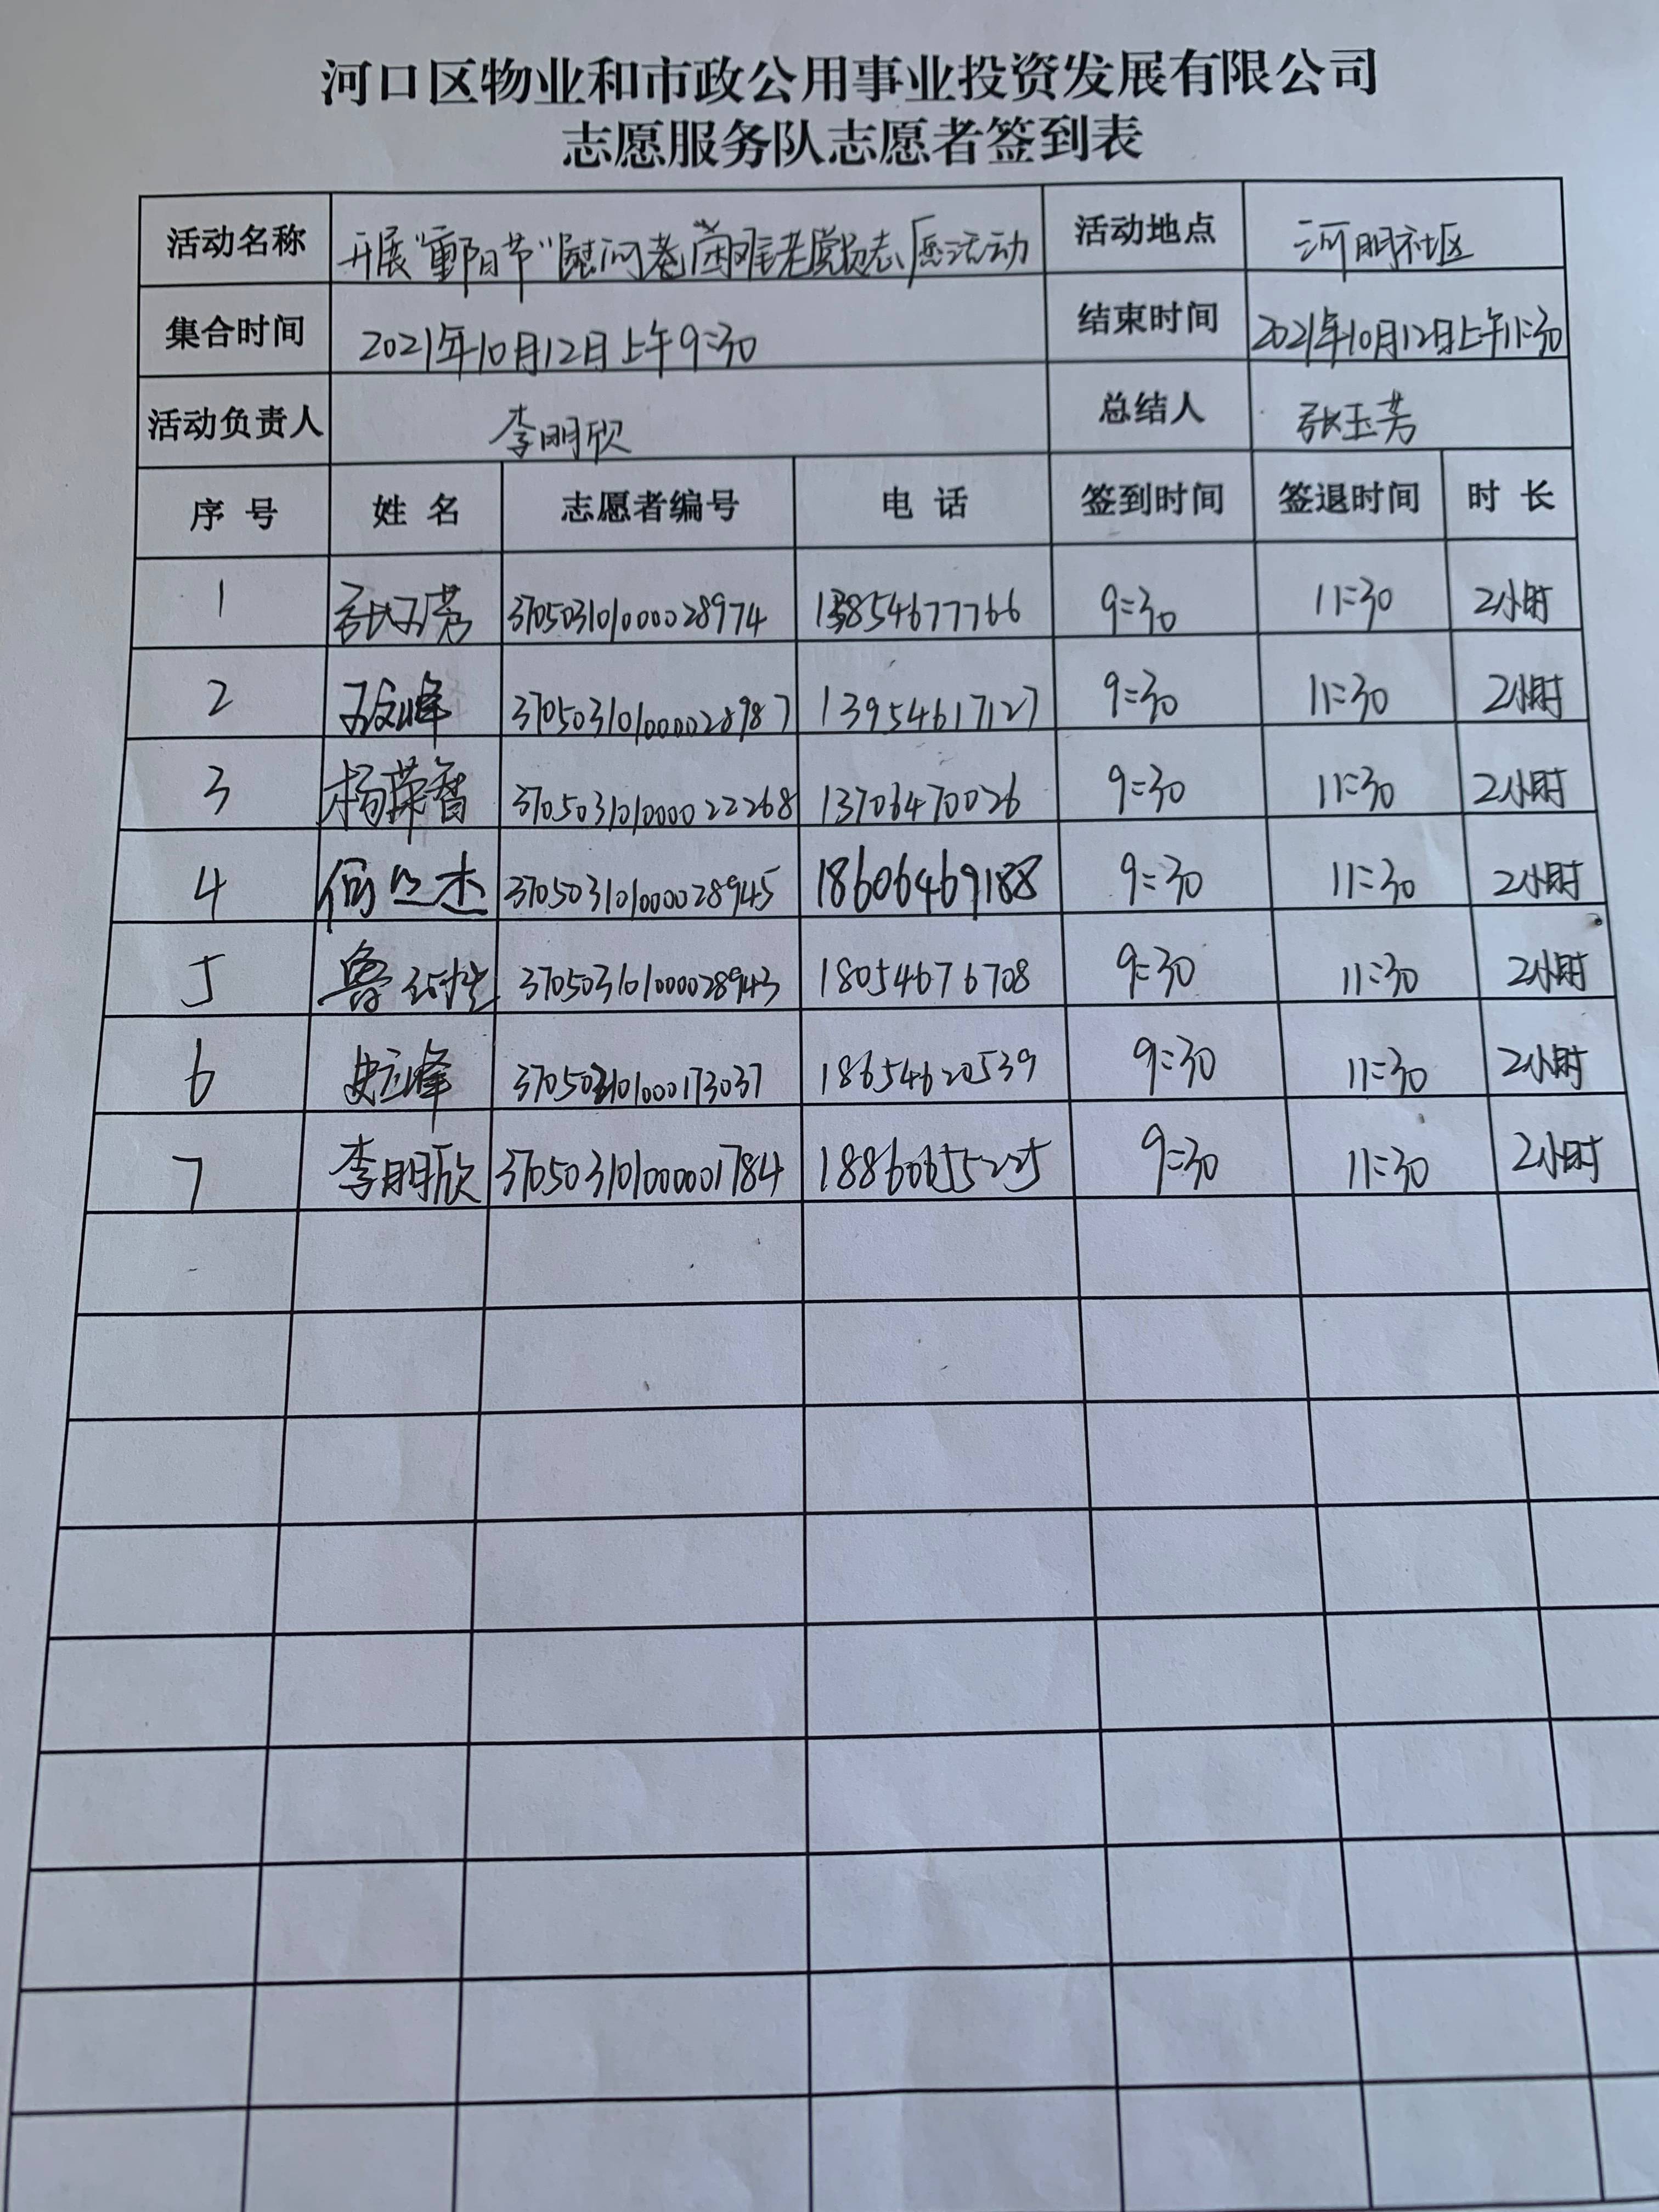 河口区物业和市政公用事业投资发展有限公司
志愿服务队志愿者签到表
活动名称 开展“重阳节”慰问老困难老党员志愿活动 活动地点 河明社区
集合时间 2021年10月12日上午9:30 结束时间 2021年10月12日上午11:30
活动负责人 李明欣 总结人 张玉芳
序号 姓名 志愿者编号 电话 签到时间 签退时间 时长
1 张玉芳 370503101000028974 13854677766 9:30 11:30 2小时
2 3705031010000028987 13954617127 9:30 11:30 2小时
3 杨荣智 3705031010000022268 13706470026 9:30 11:30 2小时
4 何 杰 3705031010000028945 18606469188 9:30 11:30 2小时
5 鲁 3705031010000028943 18054676708 9:30 11:30 2小时
6 史立峰 370503101000173037 18654620539 9:30 11:30 2小时
7 李明欣 370503101000001784 18860655225 9:30 11:30 2小时